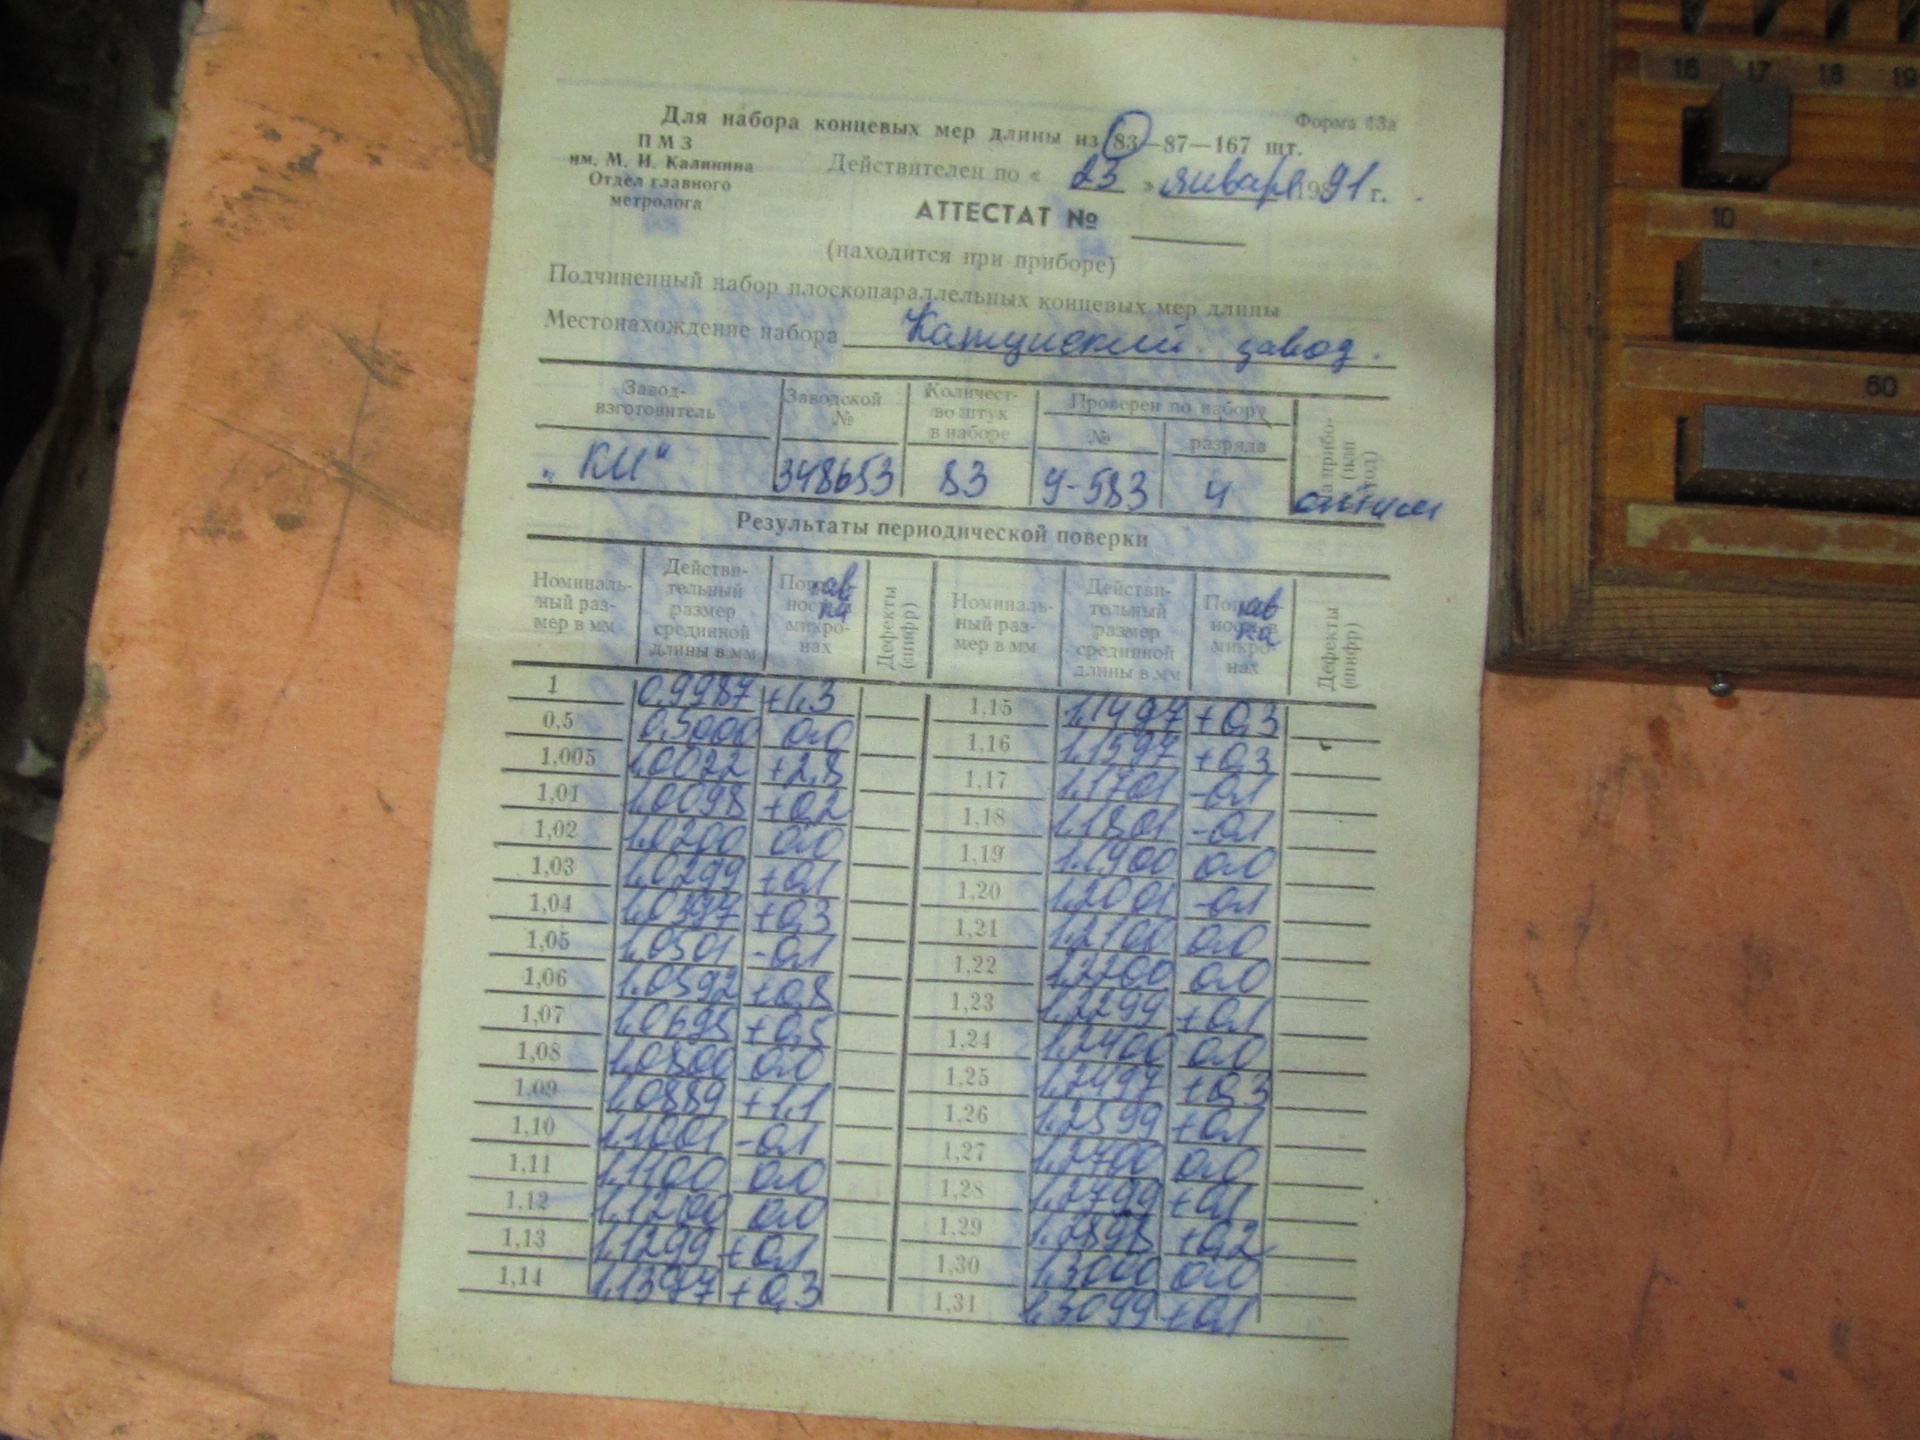 Форма 43а
Для набора концевых мер длины из 83—87—167 шт.
ПМЗ
им. М. И. Калинина
Отдел главного
метролога
Действителен по « 23 » января 1991 г.
АТТЕСТАТ №
(находится при приборе)
Подчиненный набор плоскопараллельных концевых мер длины
Местонахождение набора завод.
Завод-изготовитель Заводской № Количест-во штук в наборе Проверен по набору № разряда
„КИ“ 348653 83 У-583 4
Результаты периодической поверки
Номиналь-ный раз-мер в мм Действи-тельный размер срединной длины в мм микро-нах Дефекты (шифр) Номиналь-ный раз-мер в мм Действи-тельный размер срединной длины в мм микро-нах Дефекты (шифр)
1 0,9987 +1.3 1,15 1,1497 +0,3
0,5 0,5000 0.0 1,16 1.1597 +0,3
1,005 1,0022 +2,8 1,17 1,1701 -0,1
1,01 1,0098 +0,2 1,18 1,1801 -0,1
1,02 1,0200 0.0 1,19 1.1900 0.0
1,03 1,0299 +0,1 1,20 1,2001 -0,1
1,04 1,0397 +0,3 1,21 1,2100 0.0
1,05 1,0501 -0,1 1,22 1,2200 0.0
1,06 1.0592 +0,8 1,23 1,2299 +0,1
1,07 1,0695 +0,5 1,24 1,2400 0.0
1,08 1,0800 0.0 1,25 1,2497 +0,3
1,09 1,0889 +1.1 1,26 1,2599 +0,1
1,10 1,1001 -0,1 1,27 1,2700 0.0
1,11 1,1100 0.0 1,28 1,2799 +0,1
1,12 1,1200 0.0 1,29 1,2898 +0,2
1,13 1,1299 +0,1 1,30 1,3000 0.0
1,14 1,1397 +0,3 1,31 1,3099 +0,1
16 17 18 19
10
60